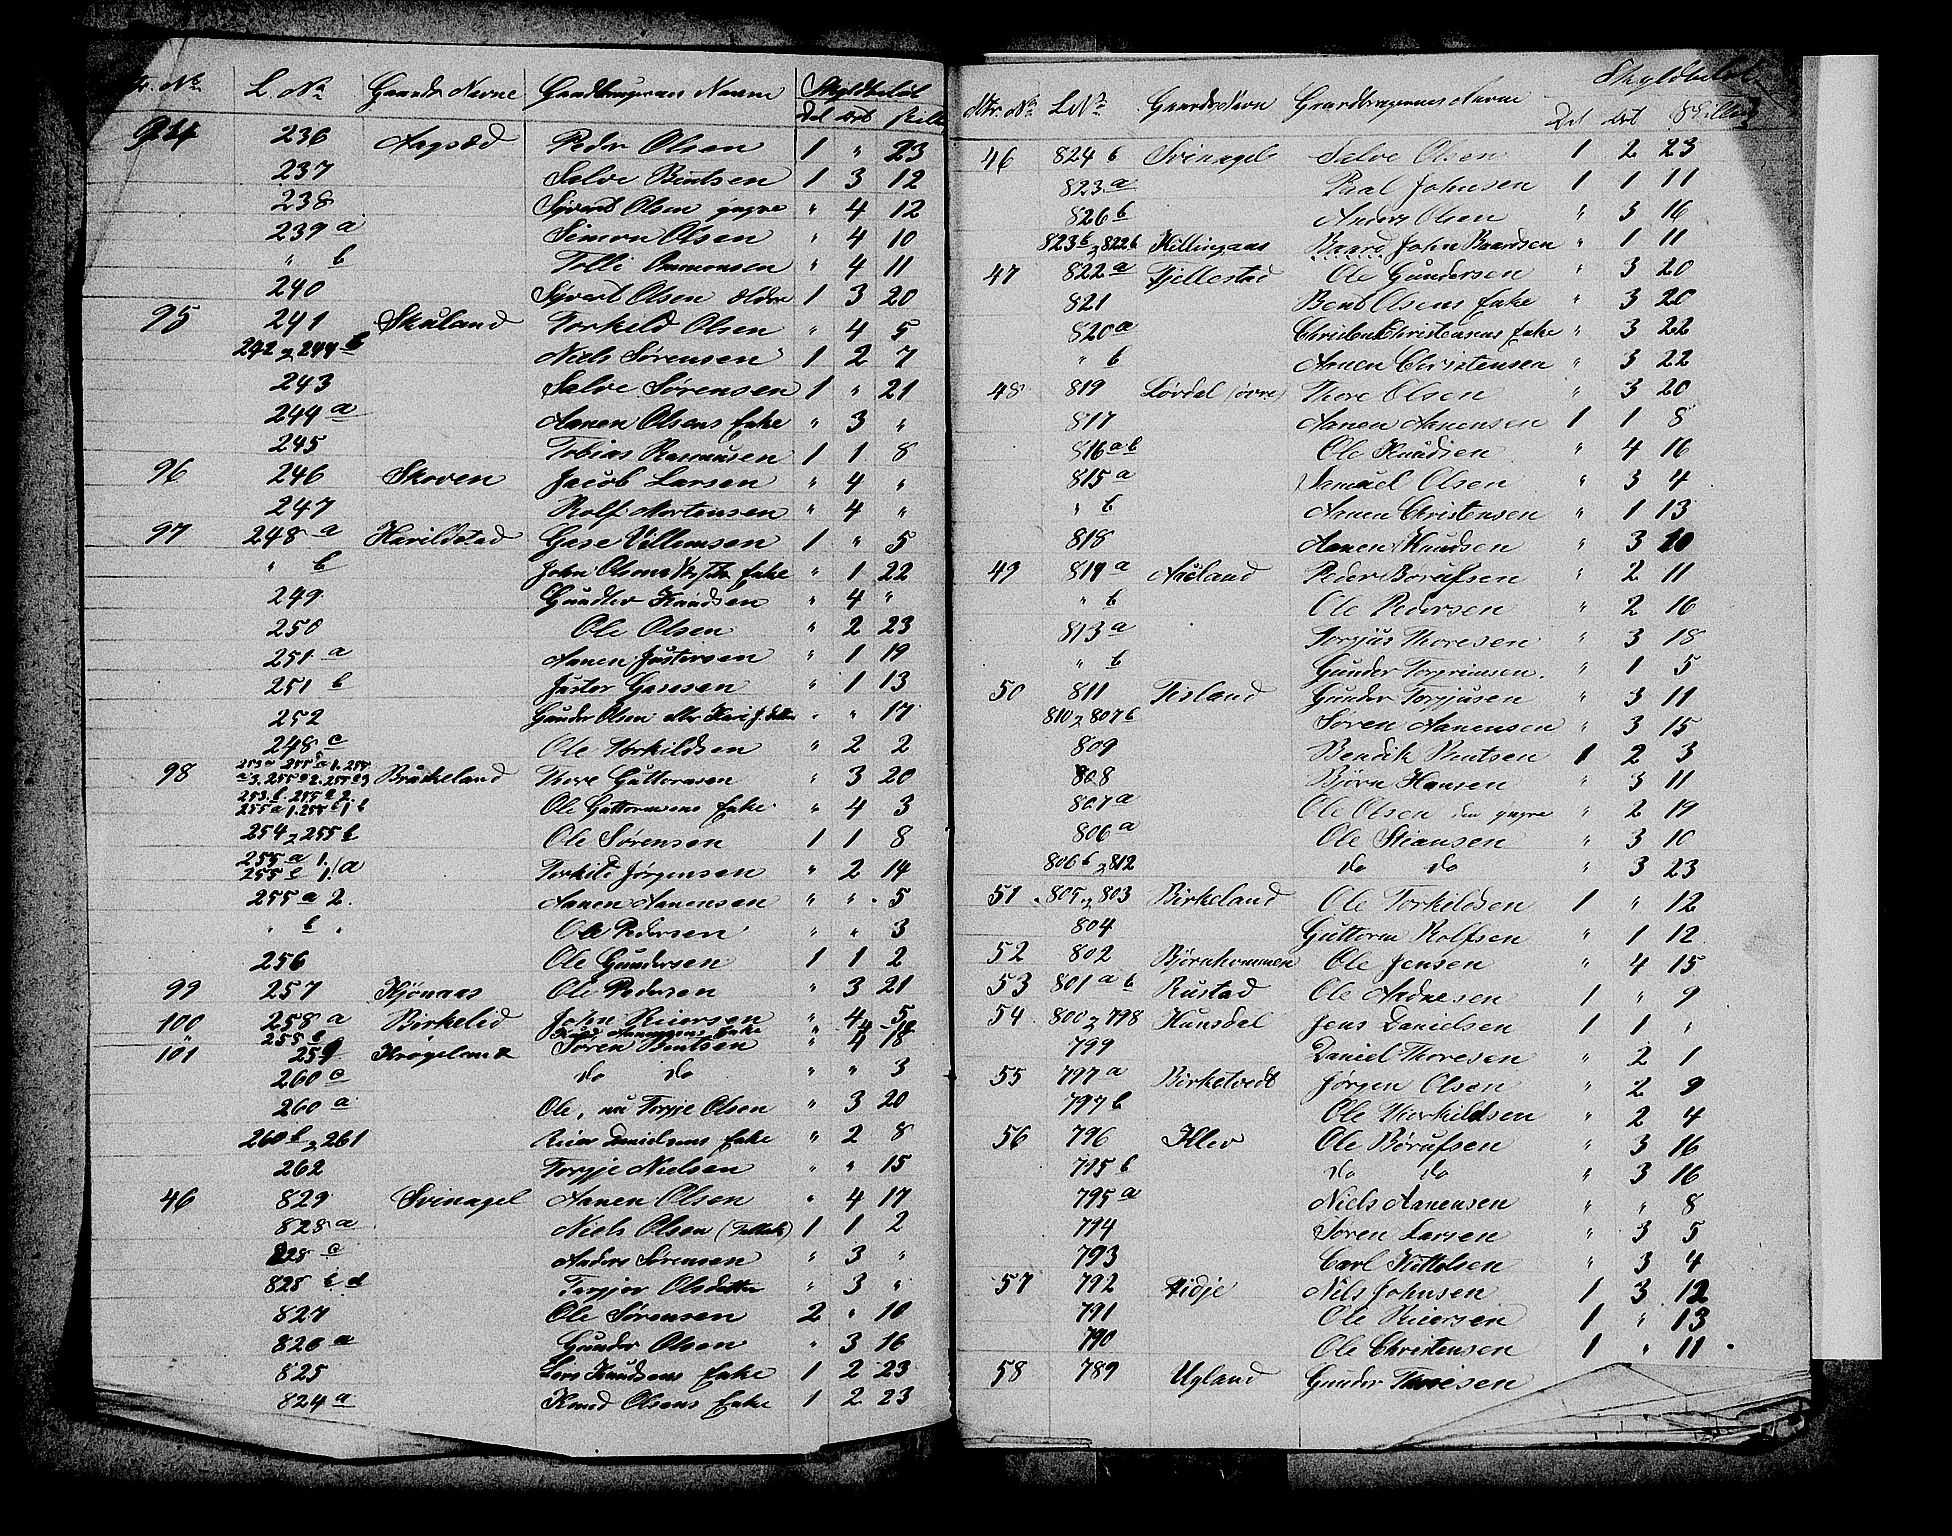 Tr. No L. No Gaards Navne Gaardbrugerens Navne Skyldbeløb
Dal Ort Skill
94 236 Aagsæd Peder Olsen 1 " 23
237 Salve Bentsen 1 3 12
238 Syvert Olsen yngre " 4 12
239 a Simon Olsen " 4 10
" b Tolli Ommonsen " 4 11
240 Syvert Olsen ældre 1 3 20
95 241 Skuland Torkeld Olsen " 4 5
242 & 244 b Niels Sørensen 1 2 7
243 Salve Sørensen 1 " 21
244 a Aanen Olsens Enke " 3 "
245 Tobias Rasmusen 1 1 8
96 246 Skoven Jacob Larsen " 4 "
247 Rolf Mortensen " 4 "
97 248 a Harildstad Gase Villumsen 1 " 5
" b John Olsens Enke " 1 22
249 Gundter Knudsen " 4 "
250 Ole Olsen " 2 23
251 a Aanen Justersen " 1 19
251 b Juster Gasesen " 1 13
252 Gunder Olsen " " 17
248 c Ole Torkildsen " 2 2
98 Bruskeland Thore Guttormsen " 3 20
Ole Guttormsens Enke " 4 3
254 & 255 b Ole Sørensen 1 1 8
255 a 1.
255 c 1/a Torkild Jørgensen " 2 14
255 a 2. Aanen Aanensen " " 5
" b " Ole Pedersen " " 3
256 Ole Gundersen 1 1 2
99 257 Kjønaas Ole Pedersen " 3 21
100 258 a Birkelid John Reiersen " 4 5
101 259 Krøgeland Søren Bentsen " 4 18
260 c Do Do " " 3
260 a Ole, nu Torje Olsen " 3 20
260 b & 261 Reier Danielsens Enke " 2 8
262 Torje Nielsen " " 15
46 829 Svinagel Aanen Olsen " 4 17
828 a Niels Olsen 1 1 2
828 c Anders Sørensen " 3 "
828 b d Torjer Olsdatter " 3 "
827 Ole Sørensen 2 " 10
826 a Gunder Olsen " 3 16
825 Lars Knudsens Enke 1 2 23
824 a Knud Olsens Enke 1 2 23
Mtr. No L No Gaards Navn Gaardbrugerens Navne Skyldbeløb
Dal Ort Skilling
46 824 b Svinagel Salve Olsen 1 2 23
823 a Paal Johnsen 1 1 11
826 b Anders Olsen " 3 16
823 b & 822 b Killingaas Baard John Baardsen " 1 11
47 822 a Fjellestad Ole Gundersen " 3 20
821 Bent Olsens Enke " 3 20
820 a Christen Christensens Enke " 3 22
" b Aanen Christensen " 3 22
48 819 Løvdal (øvre) Thore Olsen " 3 20
817 Aanen Aanensen 1 1 8
816 a b Ole Knudsen " 4 16
815 a Samuel Olsen " 3 4
" b Aanen Christensen " 1 13
818 Aanen Knudsen " 3 10
49 814 a Aaeland Peder Børufsen " 2 11
" b Ole Pedersen " 2 16
813 a Torjus Thoresen " 3 18
" b Gunder Torgrimsen " 1 5
50 811 Fisland Gunder Torjusen " 3 11
810 & 807 b Søren Aanensen " 3 15
809 Bendik Bentsen 1 2 3
808 Bjørn Hansen " 3 11
807 a Ole Olsen den yngre " 2 19
806 a Ole Stiansen " 3 10
806 b & 812 Do Do " 3 23
51 805 & 803 Birkeland Ole Torkildsen 1 " 12
804 Guttorm Rolfsen " 1 12
52 802 Bjørnkommen Ole Jensen " 4 15
53 801 a b Rustad Ole Andresen 1 " 9
54 800 & 798 Kunsdal Jens Danielsen 1 1 "
799 Daniel Thoresen " 2 1
55 797 a Birketvedt Jørgen Olsen " 2 9
797 b Ole Thorkildsen " 2 4
56 796 Klev Ole Børufsen " 3 16
795 b Do Do " 3 16
795 a Niels Aanensen " " 8
794 Søren Larsen " 3 5
793 Carl Kittelsen " 3 4
57 792 Hidje Nils Johnsen 1 3 12
791 Ole Reiersen 1 " 13
790 Ole Christensen 1 " 11
58 789 Ugland Gunder Thoresen